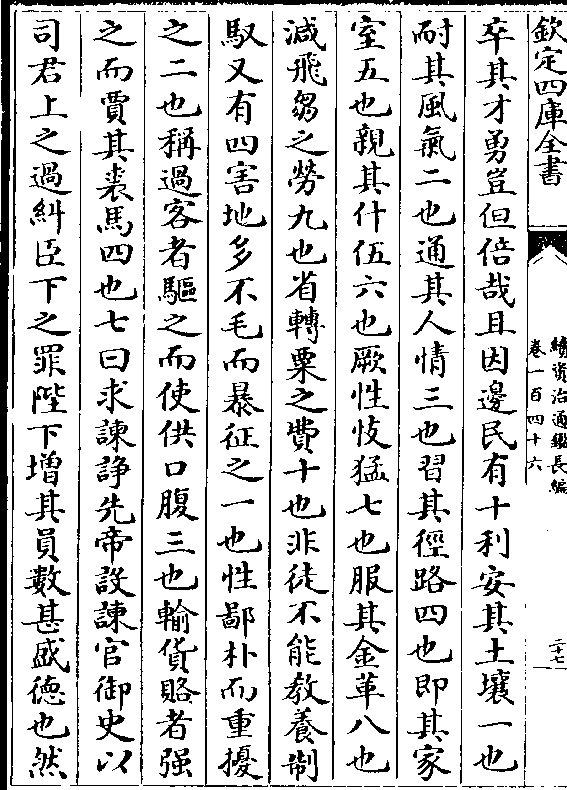 欽定四庫全書
續資治通鑑長編
卷一百四十六
二十七
卒其才勇豈但倍哉且因邊民有十利安其土壤一也
耐其風氣二也通其人情三也習其徑路四也即其家
室五也親其什伍六也厥性忮猛七也服其金革八也
減飛芻之勞九也省轉粟之費十也非徒不能教養制
馭又有四害地多不毛而暴征之一也性鄙朴而重擾
之二也稱過客者驅之而使供口腹三也輸貨賂者强
之而賈其裘馬四也七曰求諫諍先帝設諫官御史以
司君上之過糾臣下之罪陛下增其員數甚盛德也然